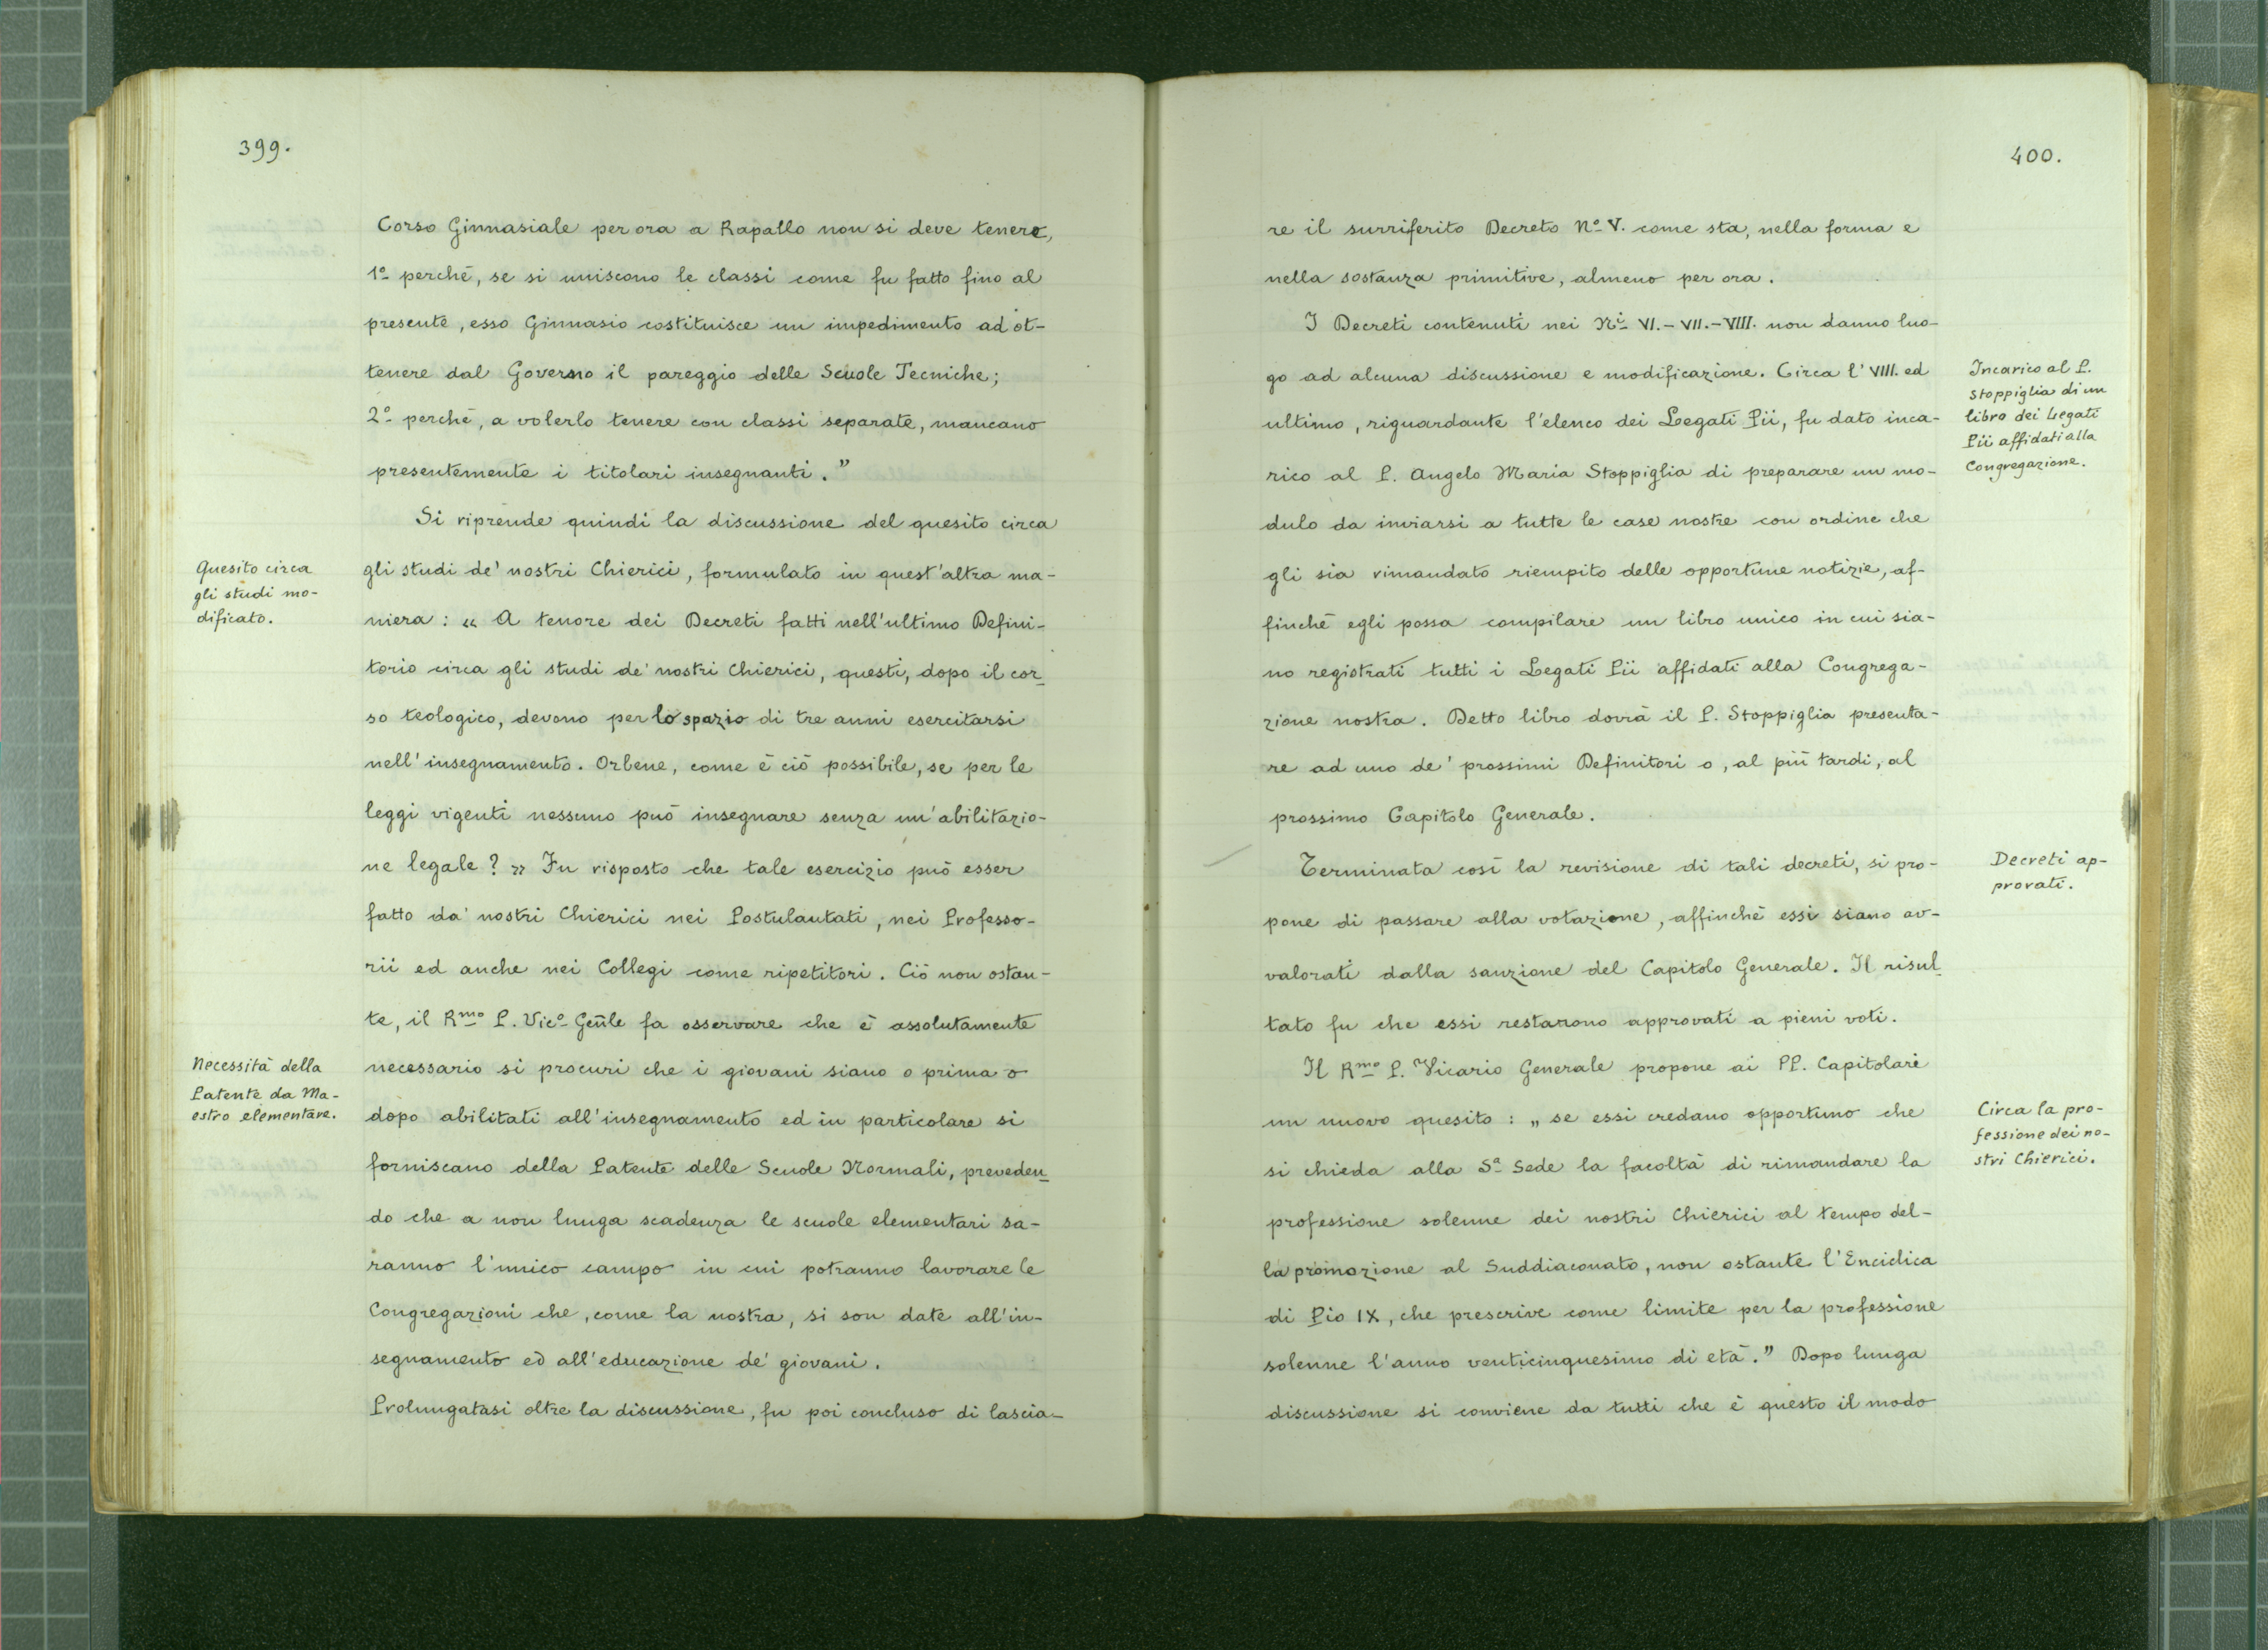 399.
Corso Ginnasiale per ora a Rapallo non si deve tenere,
1º perchè, se si uniscono le classi come fu fatto fino al
presente, esso Ginnasio costituisce un impedimento ad ot-
tenere dal Governo il pareggio delle Scuole Tecniche;
2º perchè, a volerlo tenere con classi separate, mancano
presentemente i titolari insegnanti."
Si riprende quindi la discussione del quesito circa
Quesito circa
gli studi mo-
dificato.
gli studi de' nostri Chierici, formulato in quest'altra ma-
niera: « A tenore dei Decreti fatti nell'ultimo Defini-
torio circa gli studi de' nostri Chierici, questi, dopo il cor-
so teologico, devono per lo spazio di tre anni esercitarsi
nell'insegnamento. Orbene, come è ciò possibile, se per le
leggi vigenti nessuno può insegnare senza un'abilitazio-
ne legale? » Fu risposto che tale esercizio può esser
fatto da' nostri Chierici nei Postulantati, nei Professo-
rii ed anche nei Collegi come ripetitori. Ciò non ostan-
te, il Rmo P. Vicº Gen̄le fa osservare che è assolutamente
Necessità della
Patente da Ma-
estro elementare.
necessario si procuri che i giovani siano o prima o
dopo abilitati all'insegnamento ed in particolare si
forniscano della Patente delle Scuole Normali, preveden-
do che a non lunga scadenza le scuole elementari sa-
ranno l'unico campo in cui potranno lavorare le
Congregazioni che, come la nostra, si son date all'in-
segnamento ed all'educazione de' giovani.
Prolungatasi oltre la discussione, fu poi concluso di lascia-
400.
re il surriferito Decreto Nº V. come sta, nella forma e
nella sostanza primitive, almeno per ora.
I Decreti contenuti nei Ni VI. - VII. - VIII. non danno luo-
go ad alcuna discussione e modificazione. Circa l'VIII. ed
ultimo, riguardante l'elenco dei Legati Pii, fu dato inca-
rico al P. Angelo Maria Stoppiglia di preparare un mo-
dulo da inviarsi a tutte le case nostre con ordine che
gli sia rimandato riempito delle opportune notizie, af-
finchè egli possa compilare un libro unico in cui sia-
no registrati tutti i Legati Pii affidati alla Congrega-
zione nostra. Detto libro dovrà il P. Stoppiglia presenta-
re ad uno de' prossimi Definitori o, al più tardi, al
prossimo Capitolo Generale.
Incarico al P.
Stoppiglia di un
libro dei Legati
Pii affidati alla
Congregazione.
Terminata così la revisione di tali decreti, si pro-
pone di passare alla votazione, affinchè essi siano av-
valorati dalla sanzione del Capitolo Generale. Il risul-
tato fu che essi restarono approvati a pieni voti.
Decreti ap-
provati.
Il Rmo P. Vicario Generale propone ai PP. Capitolari
un nuovo quesito: „ se essi credano opportuno che
si chieda alla Sª Sede la facoltà di rimandare la
professione solenne dei nostri Chierici al tempo del-
la promozione al Suddiaconato, non ostante l'Enciclica
di Pio IX, che prescrive come limite per la professione
solenne l'anno venticinquesimo di età." Dopo lunga
discussione si conviene da tutti che è questo il modo
Circa la pro-
fessione dei no-
stri Chierici.